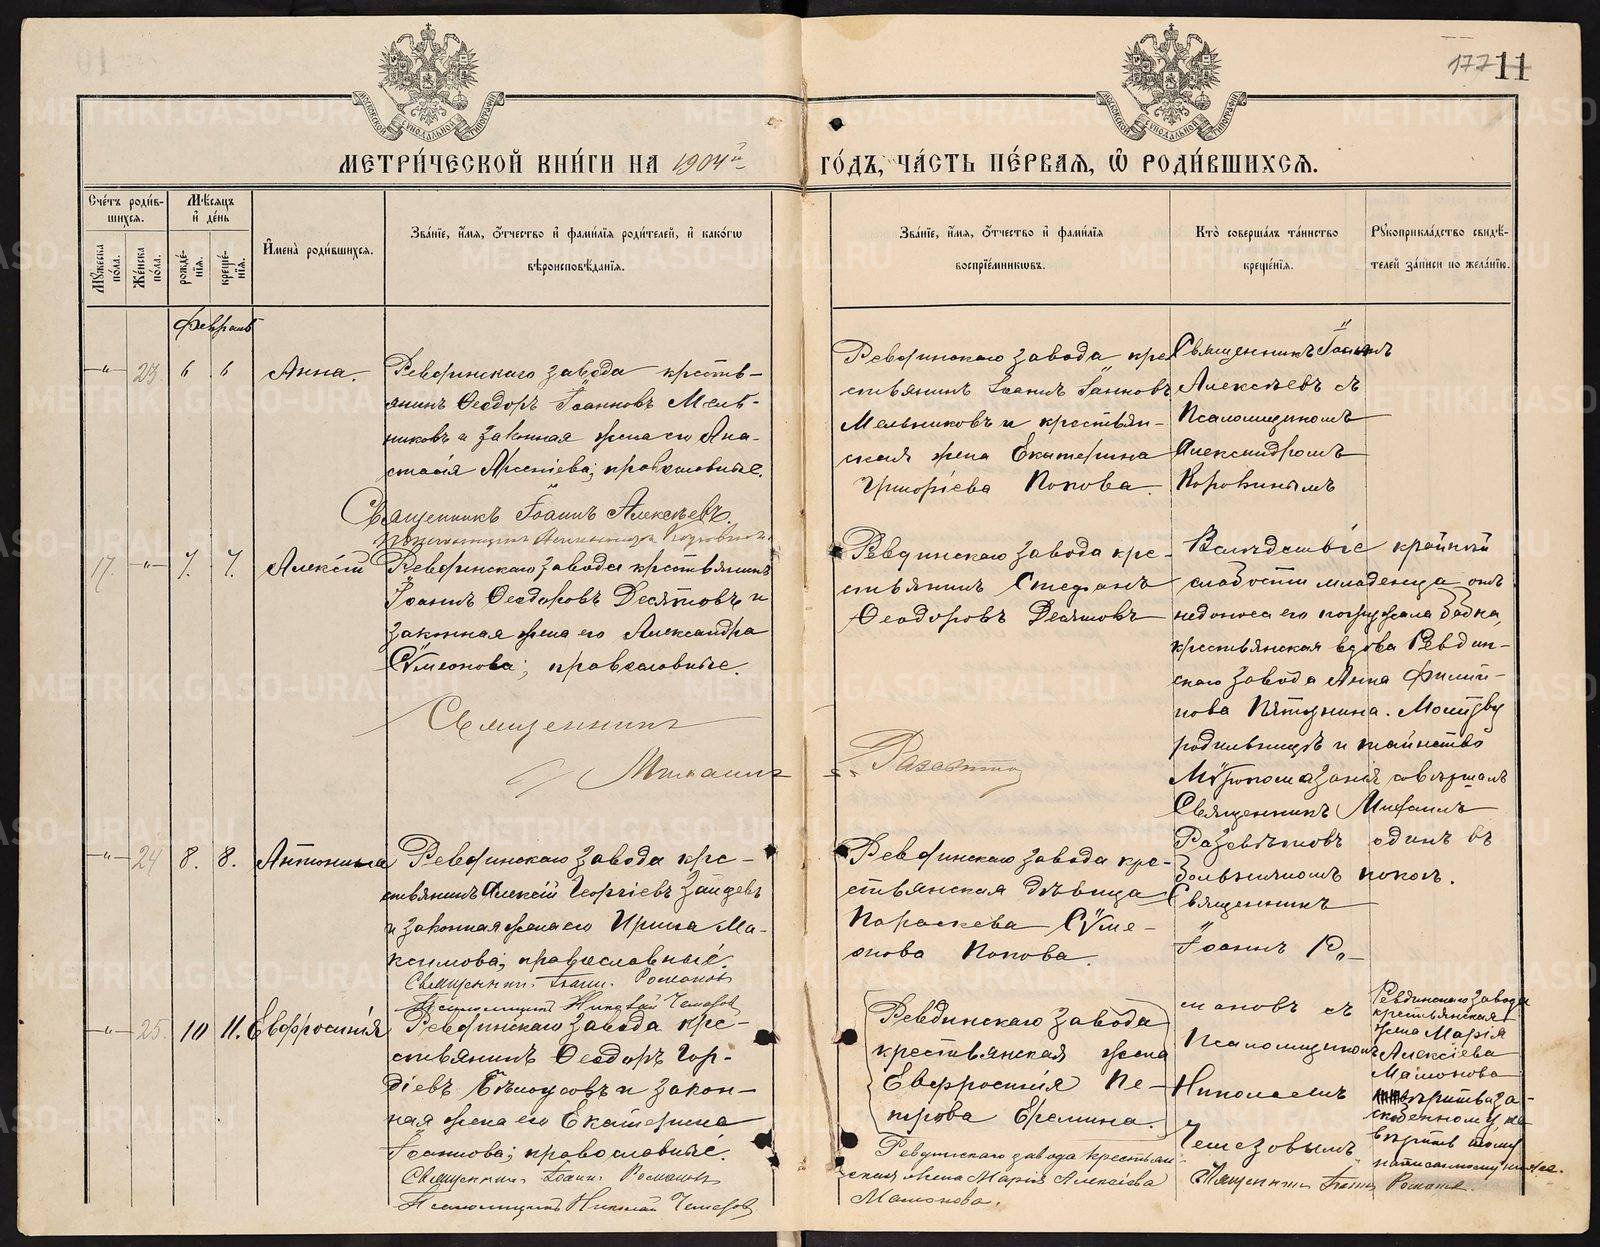 177 11
МЕТРИ́ЧЕСКОЙ КНИ́ГИ НА 1904й ГО́ДЪ, ЧА́СТЬ ПЕ́РВАЯ, Ѡ РОДИ́ВШИХСЯ.
Сче́тъ роди́в-
шихся.
Му́жеска по́ла.
Же́нска по́ла.
Мѣ́сяцъ
и де́нь
рожде́-
нїя.
креще́-
нїя.
Имена̀ роди́вшихся.
Зва́нїе, и́мя, о́тчество и фами́лїя роди́телей, и како́гѡ
вѣроисповѣ́данїя.
Зва́нїе, и́мя, о́тчество и фами́лїя
воспрїе́мникωвъ.
Кто̀ соверша́лъ та́инство
креще́нїя.
Рꙋкоприкла́дство свидѣ́-
телей за́писи по жела́нїю.
Февраль
-"- 23 6 6 Анна.
Ревдинскаго завода кресть-
янинъ Ѳеодоръ Іоанновъ Мель-
никовъ и законная жена его Ана-
стасія Арсеніева; православные.
Священникъ Іоаннъ Алексѣевъ.
Псаломщикъ Александръ Коровинъ
Ревдинскаго завода кре-
стьянинъ Іоаннъ Іоанновъ
Мельниковъ и крестьян-
ская жена Екатерина
Григоріева Попова.
Священникъ Іоаннъ
Алексѣевъ съ
Псаломщикомъ
Александромъ
Коровинымъ
17. -"- 7. 7. Алексій
Ревдинскаго завода крестьянинъ
Іоаннъ Ѳеодоровъ Десятовъ и
законная жена его Александра
Сѵмеонова; православные.
Священникъ
Михаилъ Разсвѣтовъ
Ревдинскаго завода кре-
стьянинъ Стефанъ
Ѳеодоровъ Десятовъ
Вслѣдствіе крайней
слабости младенца отъ
недоноса его погружала бабка,
крестьянская вдова Ревдин-
скаго завода Анна Филип-
пова Пятунина. Молитву
родильницѣ и таинство
Мѵропомазанія совершалъ
Священникъ Михаилъ
Разсвѣтовъ одинъ въ
-"- 24 8. 8. Антонина
Ревдинскаго завода кре-
стьянинъ Алексій Георгіевъ Зайцевъ
и законная жена его Ирина Ма-
ксимова; православные.
Священникъ Іоаннъ Романовъ
Псаломщикъ Николай Чемезовъ
Ревдинскаго завода кре-
стьянская дѣвица
Параскева Сѵме-
онова Попова.
Священникъ
Іоаннъ Ро-
мановъ съ
Псаломщикомъ
Николаемъ
Чемезовымъ
-"- 25. 10 11. Евфросинія
Ревдинскаго завода кре-
стьянинъ Ѳеодоръ Гор-
діевъ Бѣлоусовъ и закон-
ная жена его Екатерина
Іоаннова; православные.
Священникъ Іоаннъ Романовъ
Псаломщикъ Николай Чемезовъ
Ревдинскаго завода
крестьянская жена
Евфросинія Пе-
трова Еремина.
Ревдинскаго завода крестьян-
ская жена Марія Алексіева
Мамонова.
Ревдинскаго завода
крестьянская
жена Марія
Алексіева
Мамонова
вѣрить
написанному
Священникъ Іоаннъ Романовъ.
METRIKI.GASO-URAL.RU